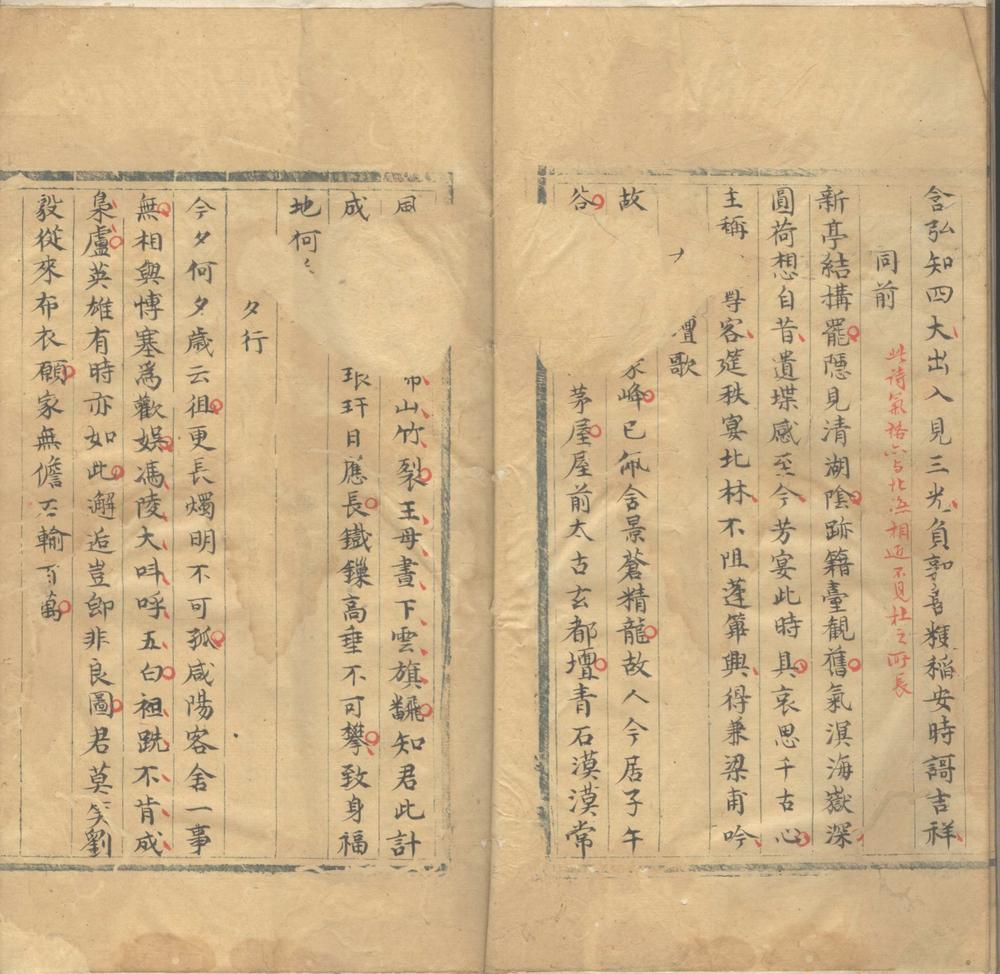 含弘知四大出入見三光負郭喜粳稻安時謌吉祥
同前
此詩氣格亦与北海相近不見杜之所長
新亭結搆罷隱見清湖陰跡籍臺觀舊氣溟海嶽深
圓荷想自昔遺堞感至今芳宴此時具哀思千古心
主稱 尊客筵秩宴北林不阻蓬篳興得兼梁甫吟
壇歌
故 家峰已佩含景蒼精龍故人今居子午
谷 茅屋屋前太古玄都壇青石漠漠常
風 山竹裂王母晝下雲旗飜知君此計
成 琅玕日應長鐵鏁高垂不可攀致身福
地何
夕行
今夕何夕歲云徂更長燭明不可孤咸陽客舍一事
無相與博塞爲歡娛馮陵大呌呼五白袒跣不肯成
梟盧英雄有時亦如此邂逅豈卽非良圖君莫笑劉
毅從來布衣願家無儋石輸百萬